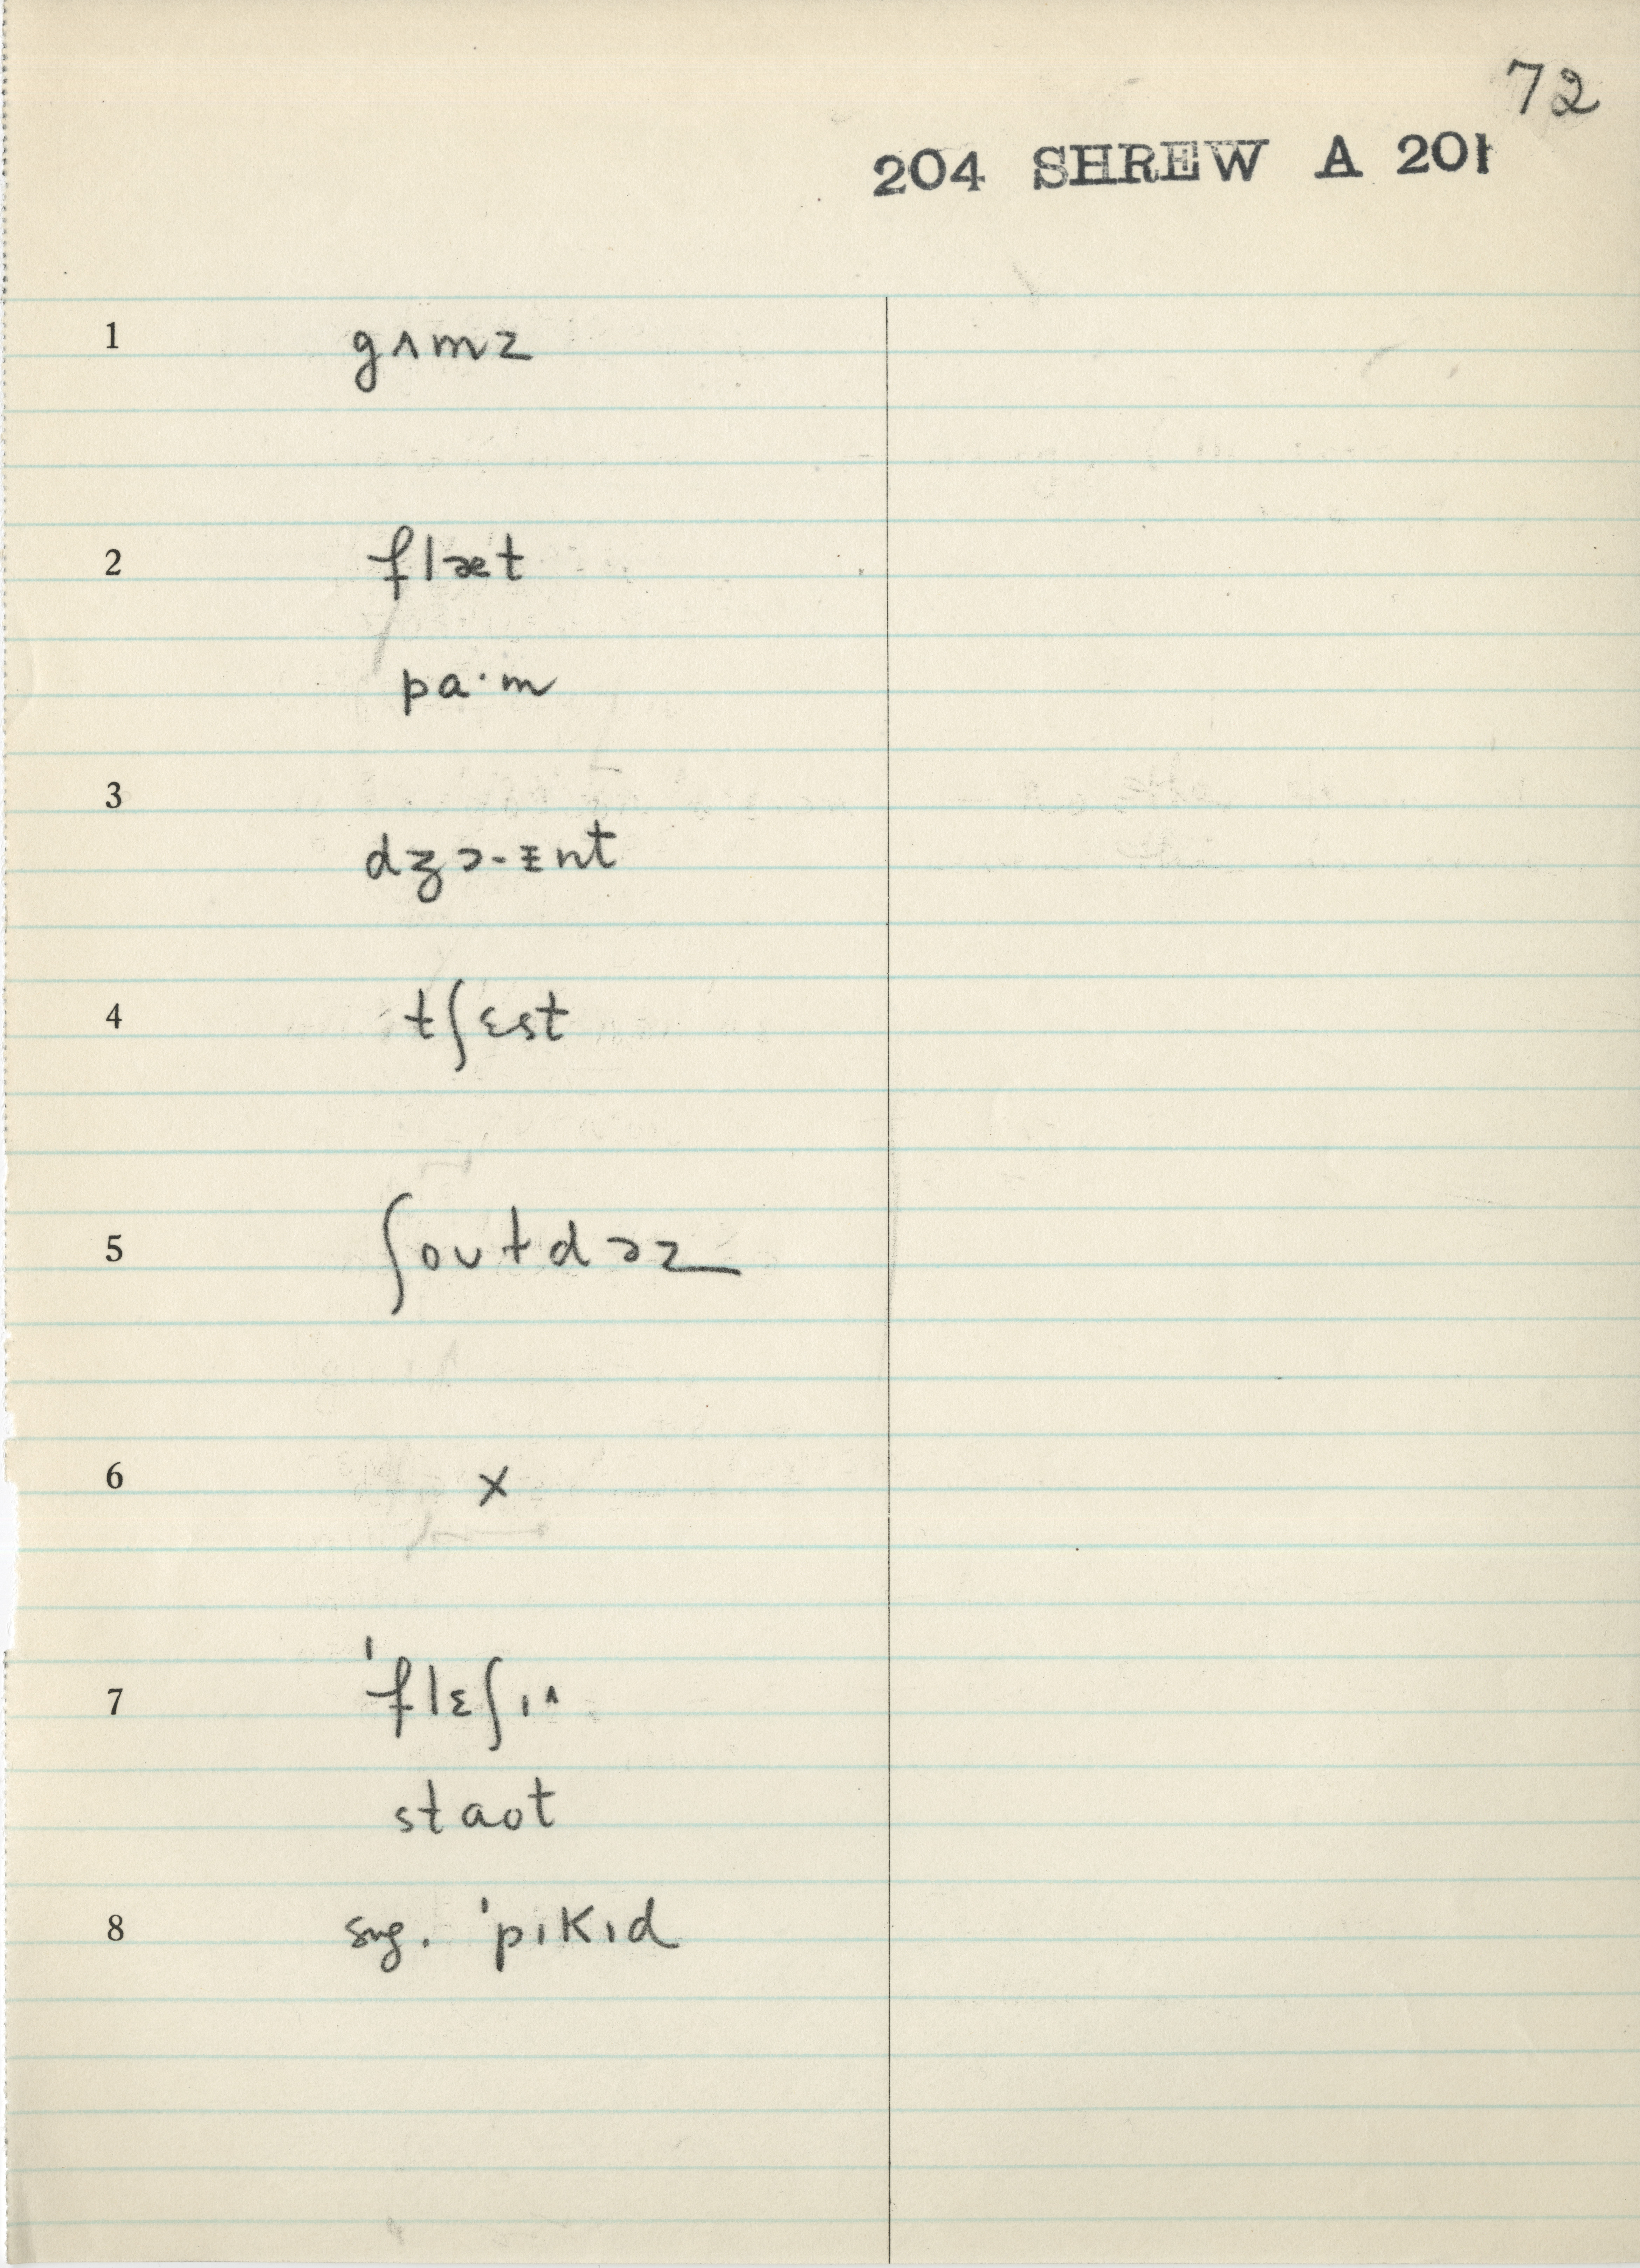 72
204 SHREW A 201
1 gʌmz
2 flæt
pa·m
3
dʒɔ-ɪnt
4 tʃɛst
5 ʃoʊtdəz
6 x
7 'flɛʃɪʌ
staot
8 sug. 'pɪkɪd